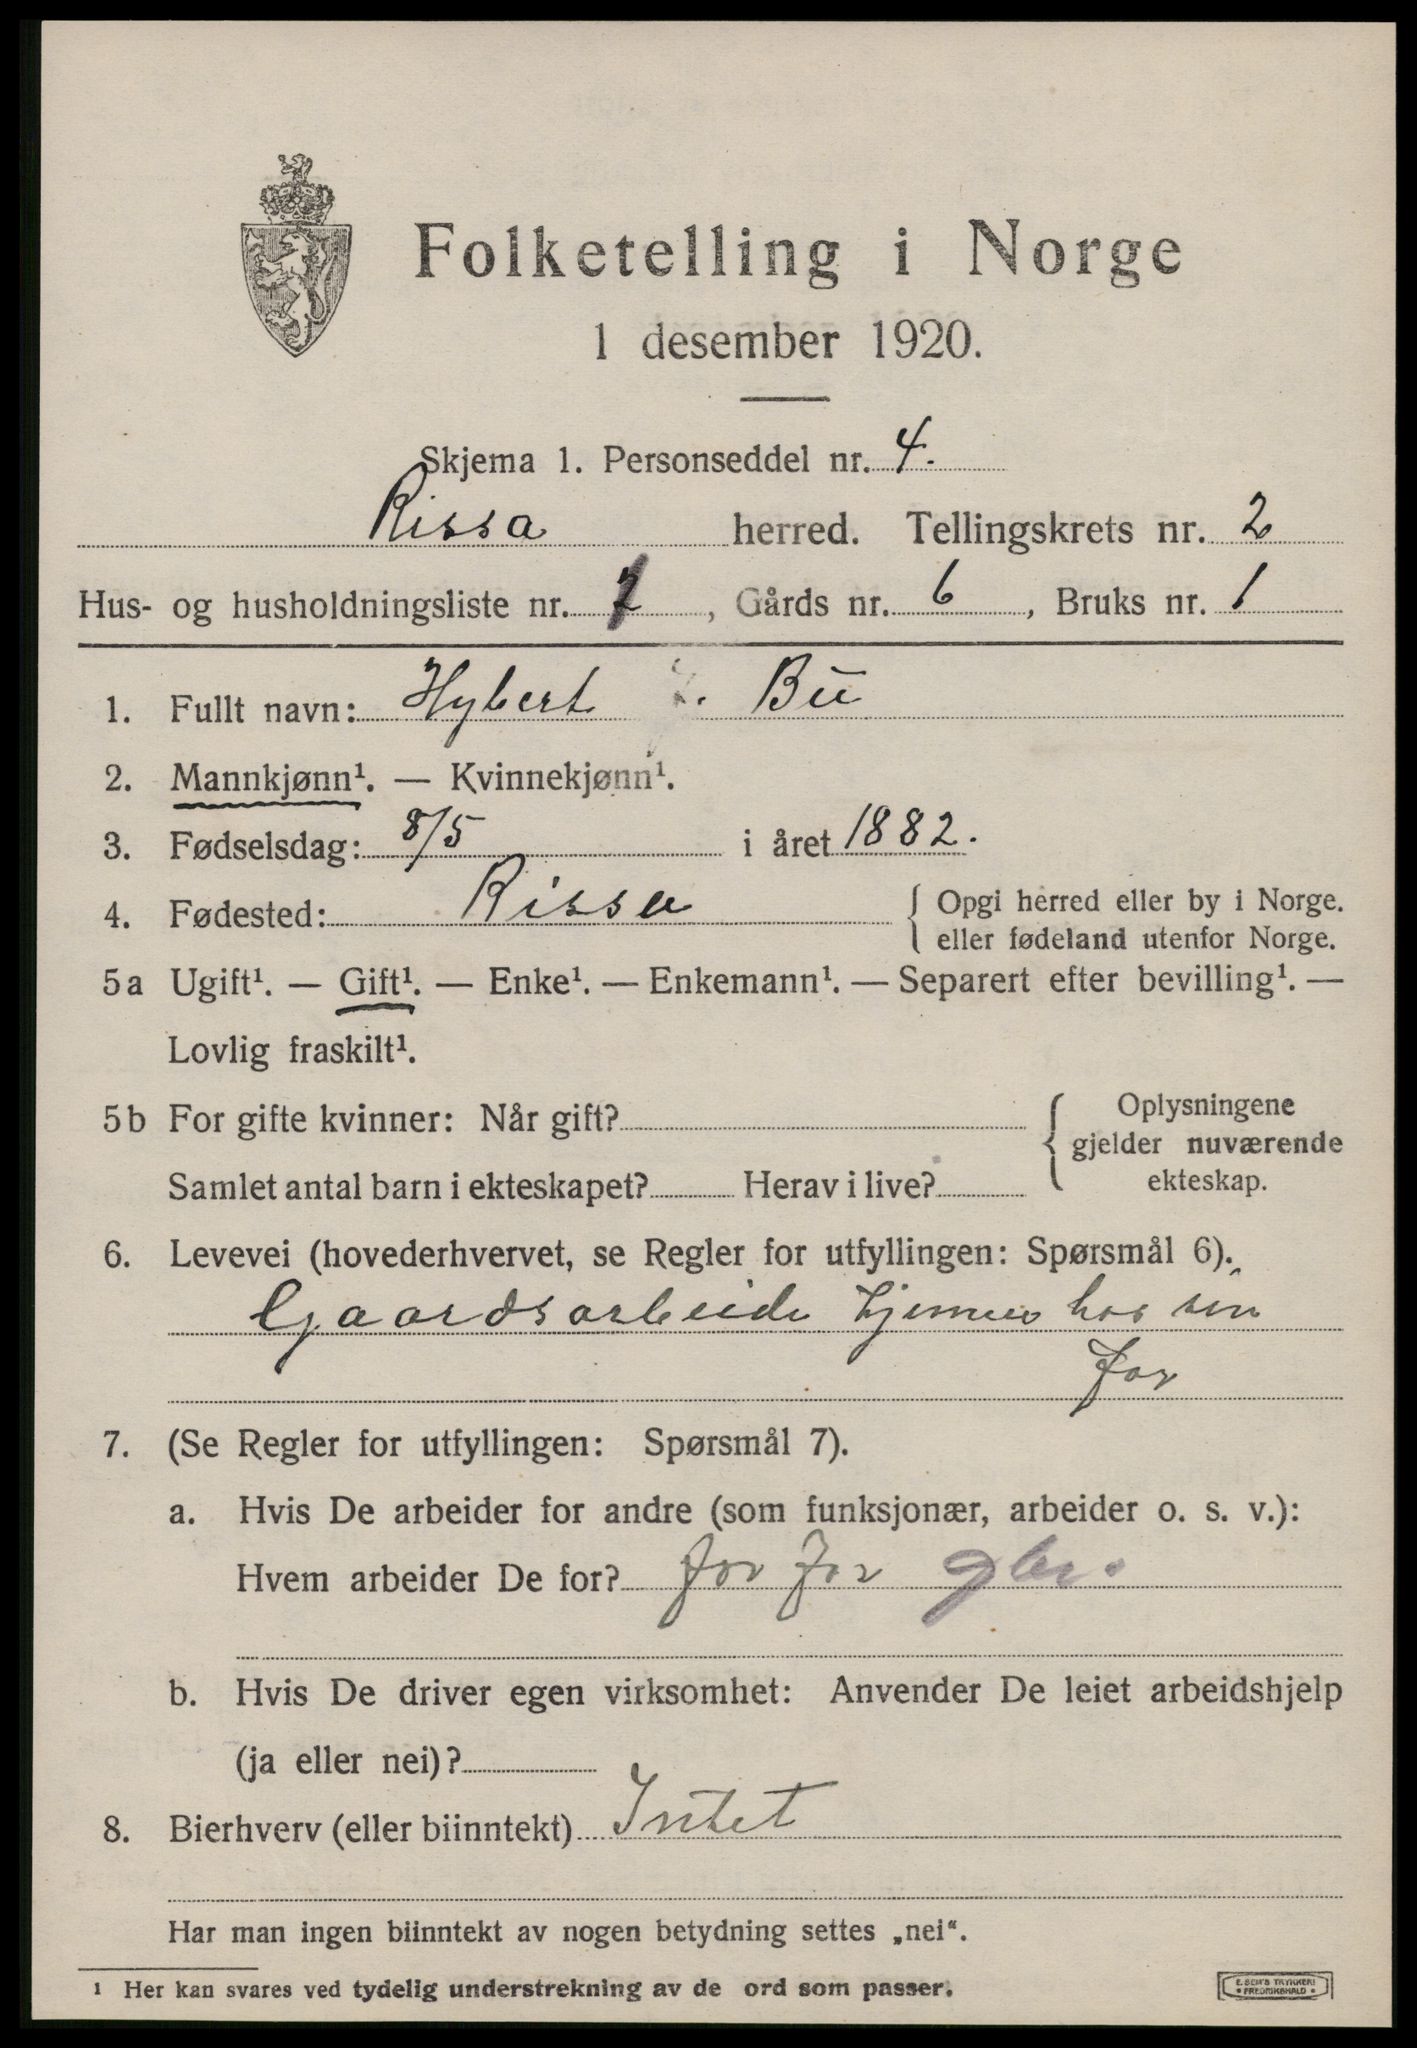 Folketelling i Norge
1 desember 1920.
Skjema 1. Personseddel nr. 4.
Rissa herred. Tellingskrets nr. 2
Hus- og husholdningsliste nr. 7, Gårds nr. 6, Bruks nr. 1
1. Fullt navn: Hybert Bu
2. Mannkjønn¹. — Kvinnekjønn¹.
3. Fødselsdag: 8/5 i året 1882.
4. Fødested: Rissa { Opgi herred eller by i Norge.
eller fødeland utenfor Norge.
5a Ugift¹. — Gift¹. — Enke¹. — Enkemann¹. — Separert efter bevilling¹. —
Lovlig fraskilt¹.
5b For gifte kvinner: Når gift? { Oplysningene
gjelder nuværende
Samlet antal barn i ekteskapet? Herav i live? ekteskap.
6. Levevei (hovederhvervet, se Regler for utfyllingen: Spørsmål 6).
Gaardsarbeide hos sin
far
7. (Se Regler for utfyllingen: Spørsmål 7).
a. Hvis De arbeider for andre (som funksjonær, arbeider o. s. v.):
Hvem arbeider De for? for far gbr.
b. Hvis De driver egen virksomhet: Anvender De leiet arbeidshjelp
(ja eller nei)?
8. Bierhverv (eller biinntekt) Intet
Har man ingen biinntekt av nogen betydning settes „nei“.
¹ Her kan svares ved tydelig understrekning av de ord som passer.
E. SEM'S TRYKKERI
• FREDRIKSHALD •